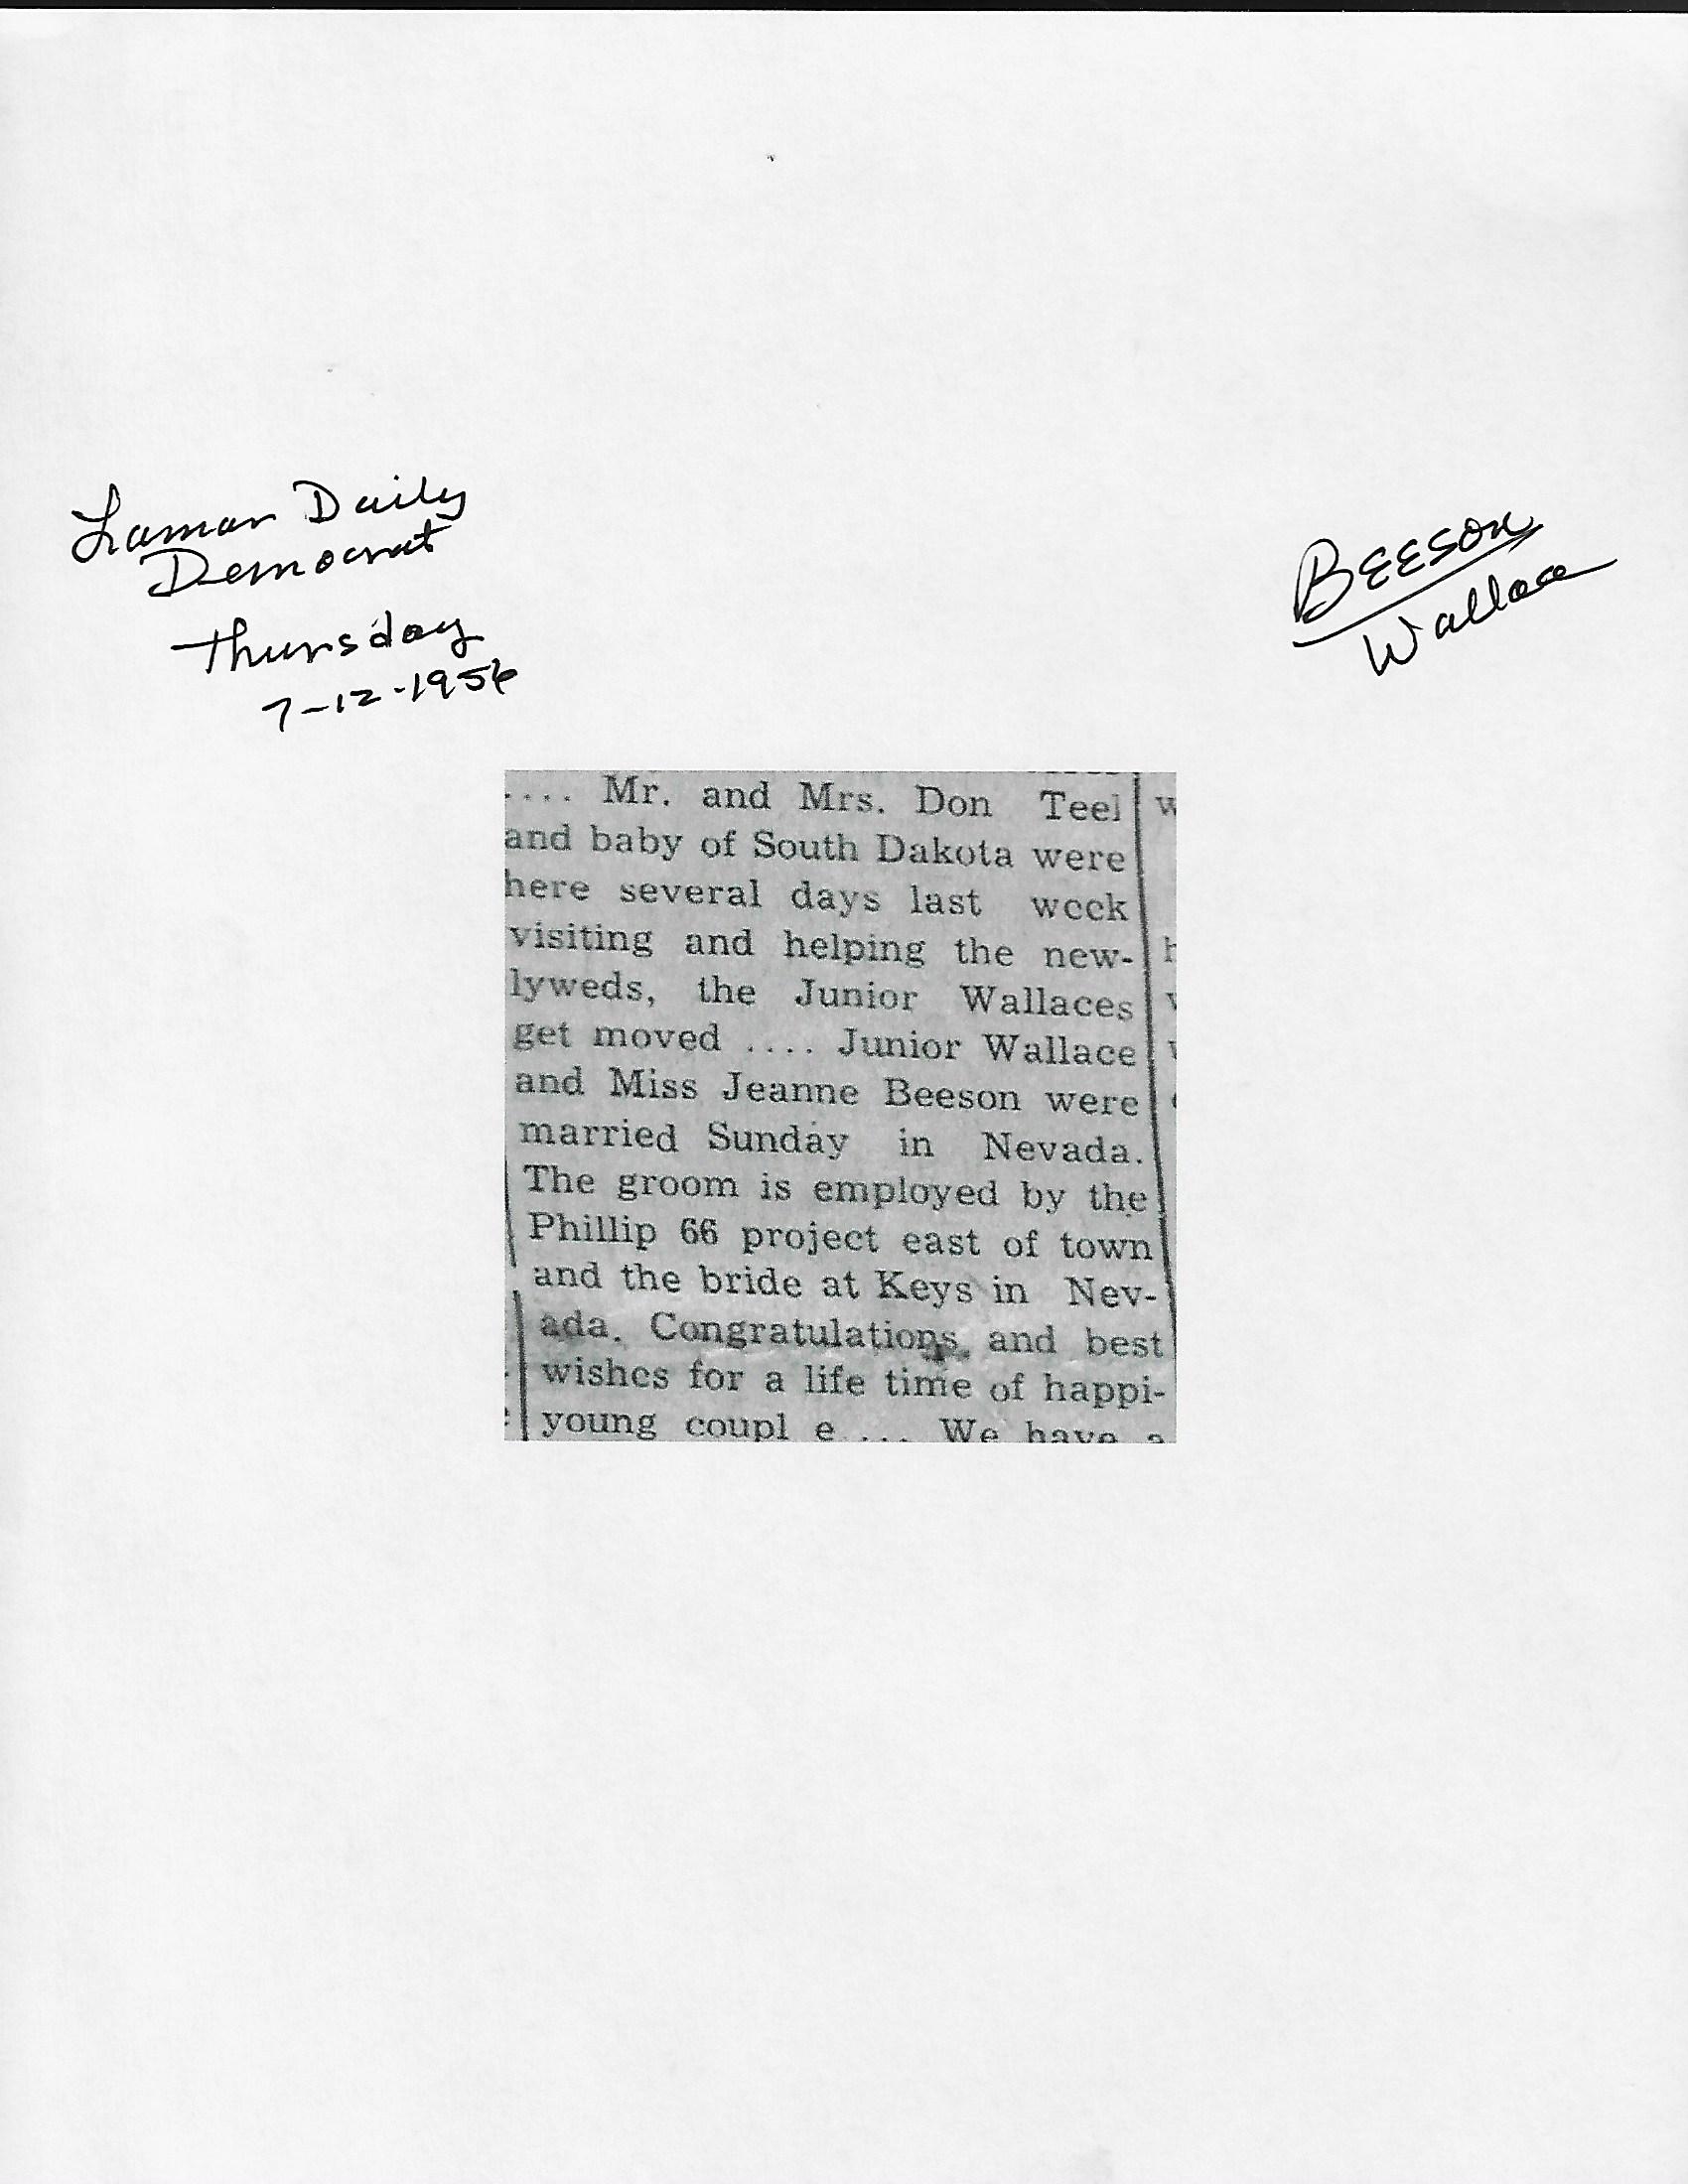 Lamar Daily
Democrat
Thursday
7-12-1956
BEESON
Wallace
.... Mr. and Mrs. Don Teel
and baby of South Dakota were
here several days last week
visiting and helping the new-
lyweds, the Junior Wallaces
get moved .... Junior Wallace
and Miss Jeanne Beeson were
married Sunday in Nevada.
The groom is employed by the
Phillip 66 project east of town
and the bride at Keys in Nev-
ada. Congratulations and best
wishes for a life time of happi-
young coupl e .... We have a